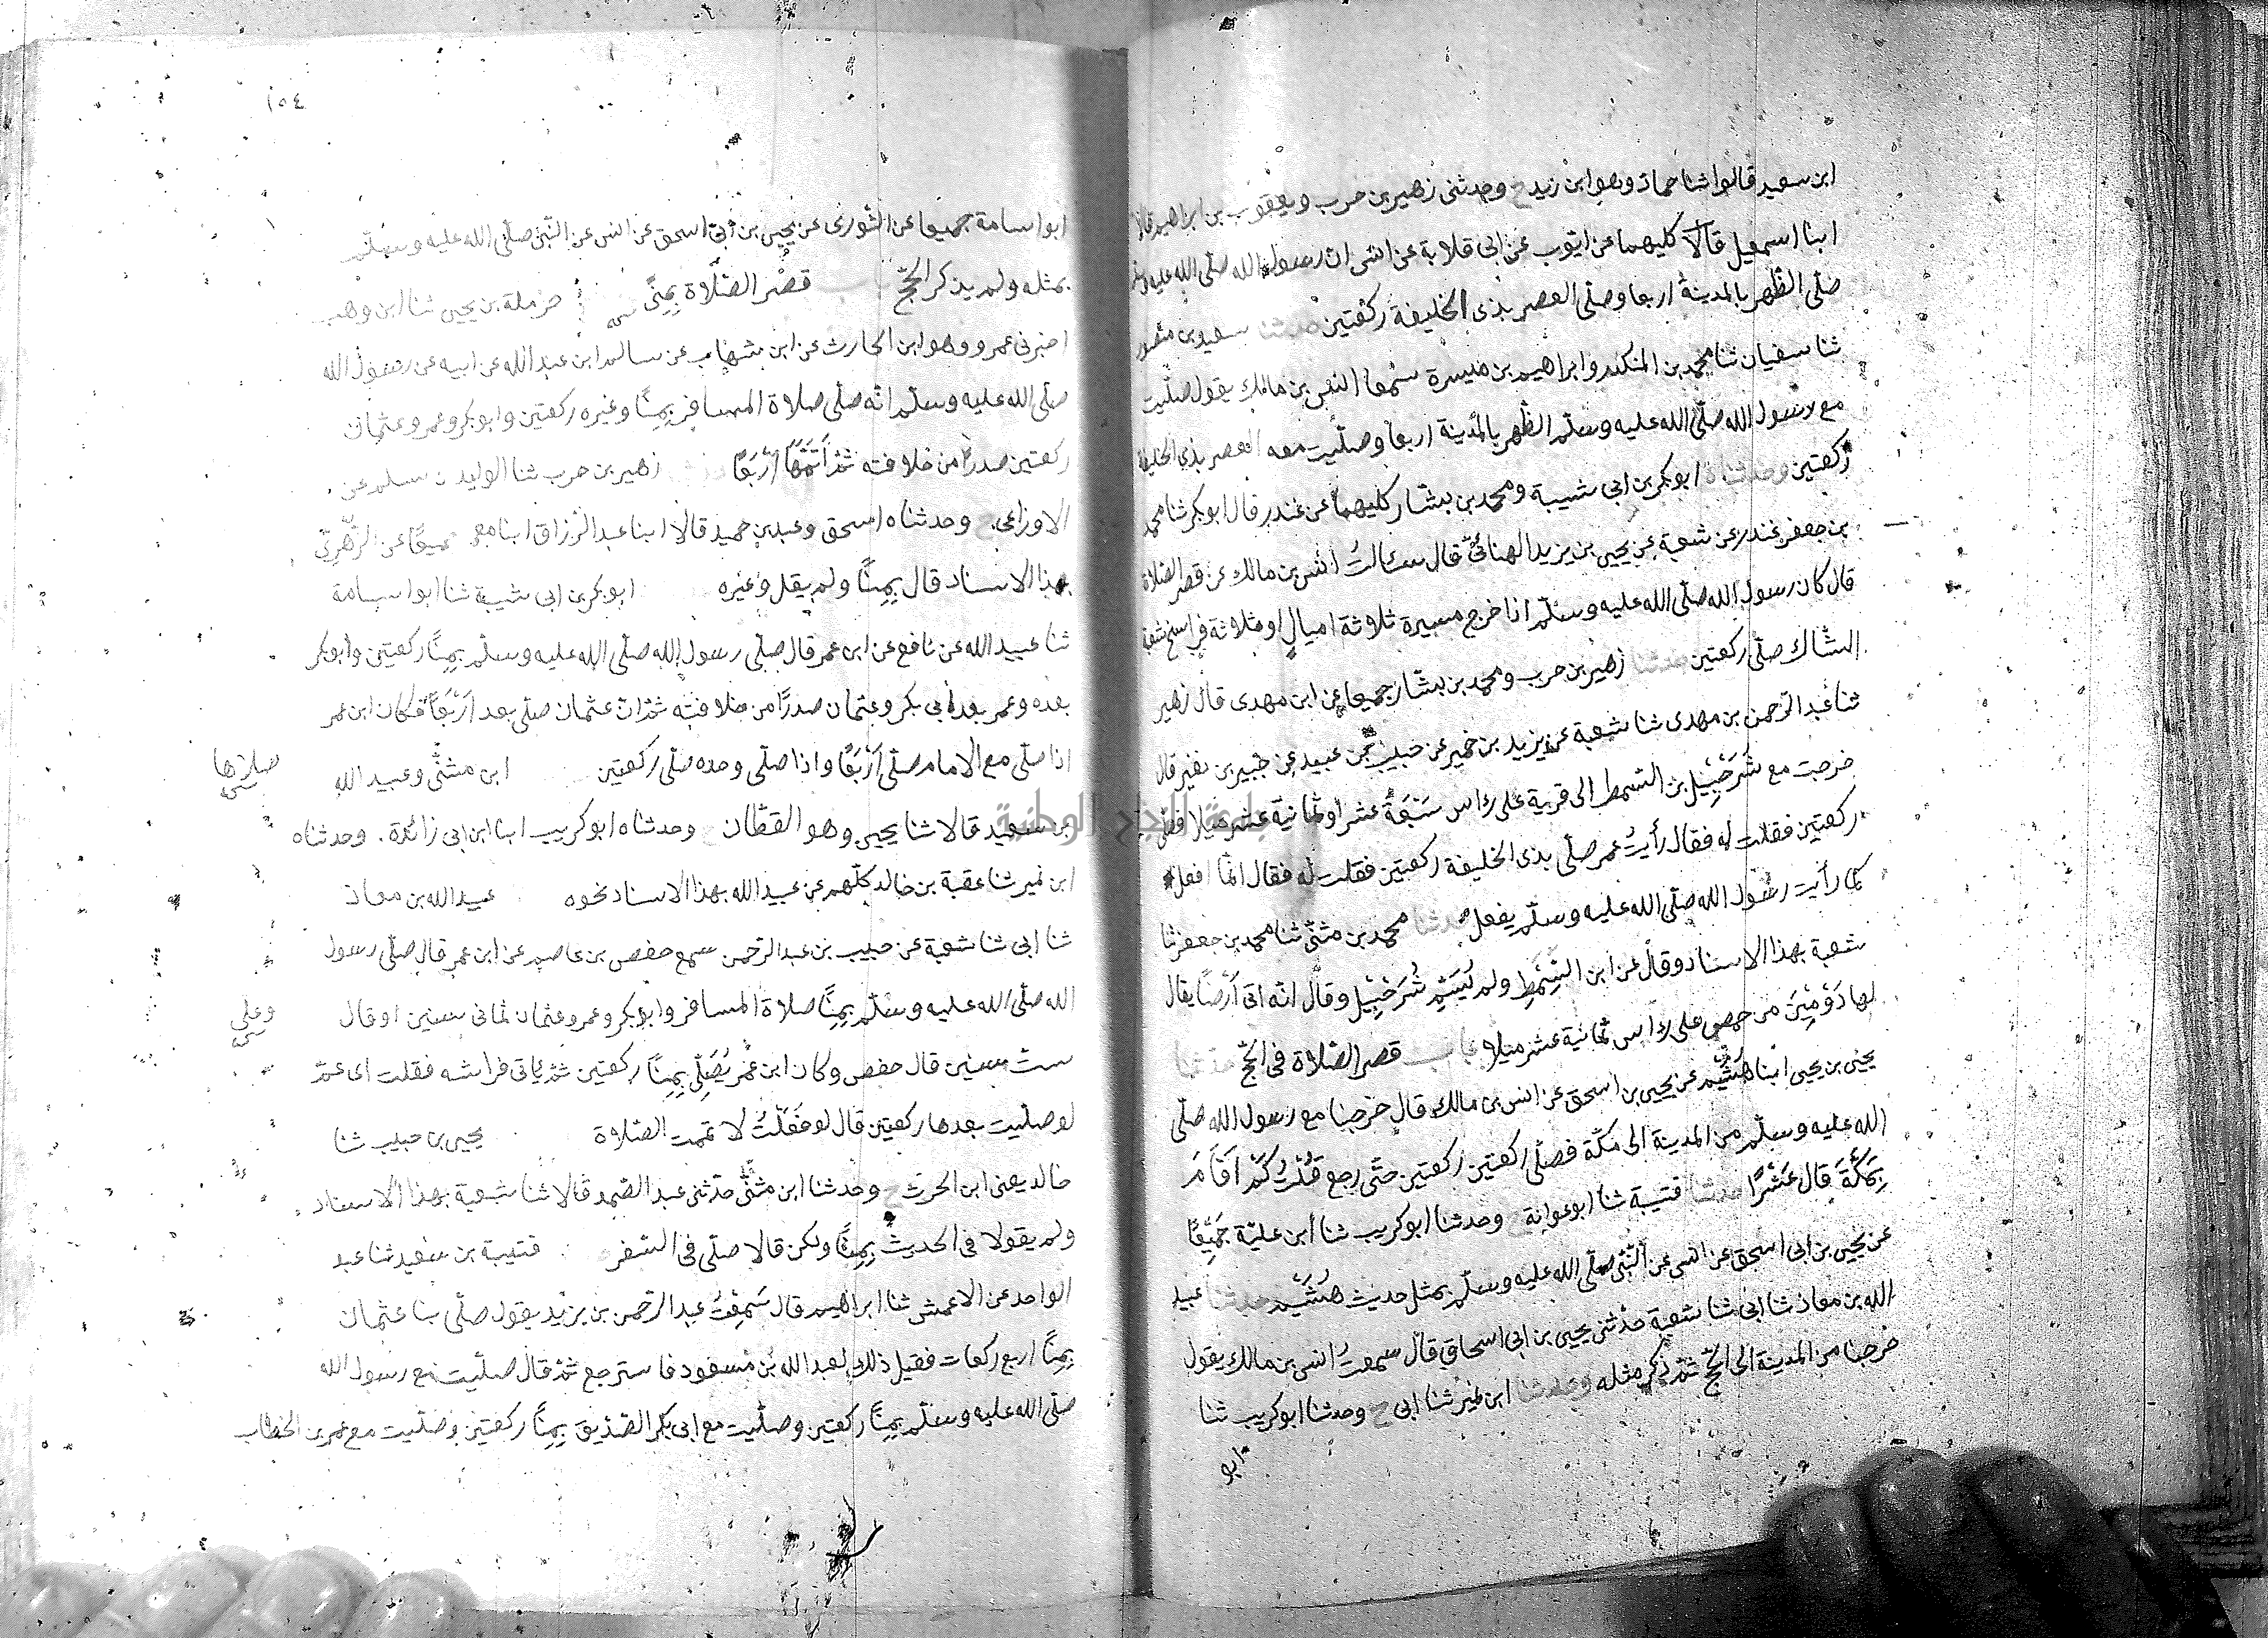 ابن سعيد قالوا ثنا حماد وهو ابن زيد ح وحدثنى زهير بن حرب ويعقوب بن ابراهيم قالا
ابنا اسمعيل قالا كليهما عن ايوب عن ابى قلابة عن انس ان رسول الله صلى الله عليه وسلم
صلى الظهر بالمدينة اربعا وصلى العصر بذى الحليفة ركعتين حدثنا سعيد بن منصور
ثنا سفيان ثنا محمد بن المنكدر وابراهيم بن ميسرة سمعا انس بن مالك يقول صليت
مع رسول الله صلى الله عليه وسلم الظهر بالمدينة اربعا وصليت معه العصر بذى الحليفة
ركعتين وحدثناه ابو بكر بن ابى شيبة ومحمد بن بشار كليهما عن غندر قال ابو بكر ثنا محمد
بن جعفر غندر عن شعبة عن يحيى بن يزيد الهنائى قال سئالت انس بن مالك عن قصر الصلاة
قال كان رسول الله صلى الله عليه وسلم اذا خرج مسيرة ثلاثة اميال او ثلاثة فراسخ شعبة
الشاك صلى ركعتين حدثنا زهير بن حرب ومحمد بن بشار جميعا عن ابن مهدى قال زهير
ثنا عبد الرحمن بن مهدى ثنا شعبة عن يزيد بن خمير عن حبيب بن عبيد عن جبير بن نفير قال
خرجت مع شرحبيل بن السمط الى قرية على رءاس سبعة عشر او ثمانية عشر ميلا فصلى
ركعتين فقلت له فقال رأيت عمر صلى بذى الحليفة ركعتين فقلت له فقال انما افعل
كما رأيت رسول الله صلى الله عليه وسلم يفعل حدثنا محمد بن مثنى ثنا محمد بن جعفر ثنا
شعبة بهذا الاسناد وقال عن ابن السمط ولم يسم شرحبيل وقال انه اتى ارضا يقال
لها دومين من حمص على رءاس ثمانية عشر ميلا باب قصر الصلاة فى الحج حدثنا
يحيى بن يحيى ابنا هشيم عن يحيى بن اسحق عن انس بن مالك قال خرجنا مع رسول الله صلى
الله عليه وسلم من المدينة الى مكة فصلى ركعتين ركعتين حتى رجع قلت كم اقام
بمكة قال عشرا حدثنا قتيبة ثنا ابو عوانة ح وحدثنا ابو كريب ثنا ابن علية جميعا
عن يحيى بن ابى اسحق عن انس عن النبى صلى الله عليه وسلم بمثل حديث هشيم حدثنا عبيد
الله بن معاذ ثنا ابى ثنا شعبة حدثنى يحيى بن ابى اسحاق قال سمعت انس بن مالك يقول
خرجنا من المدينة الى الحج ثم ذكر مثله وحدثنا ابن نمير ثنا ابى ح وحدثنا ابو كريب ثنا
ابو
١٥٤
ابو اسامة جميعا عن الثورى عن يحيى بن أبى اسحق عن انس عن النبى صلى الله عليه وسلم
بمثله ولم يذكر الحج باب قصر الصلاة بمنى حرملة بن يحيى ثنا ابن وهب
اخبرنى عمرو وهو ابن الحارث عن ابن شهاب عن سالم ابن عبد الله عن ابيه عن رسول الله
صلى الله عليه وسلم انه صلى صلاة المسافر بمنا وغيره ركعتين وابو بكر وعمر وعثمان
ركعتين صدرا من خلافته ثم اتمها اربعا زهير بن حرب ثنا الوليد بن مسلم عن
الاوزاعى ح وحدثناه اسحق وعبد بن حميد قالا ابنا عبد الرزاق ابنا معمر جميعا عن الزهرى
بهذا الاسناد قال بمنا ولم يقل وغيره ابو بكر بن ابى شيبة ثنا ابو اسامة
ثنا عبيد الله عن نافع عن ابن عمر قال صلى رسول الله صلى الله عليه وسلم بمنا ركعتين وابو بكر
بعده وعمر بعد ابى بكر وعثمان صدرا من خلافته ثم ان عثمان صلى بعد اربعا فكان ابن عمر
اذا صلى مع الامام صلى اربعا واذا صلى وحده صلى ركعتين ابن مثنى وعبيد الله
صلاها
بن سعيد قالا ثنا يحيى وهو القطان ح وحدثناه ابو كريب ابنا ابن ابى زائدة ح وحدثناه
ابن نمير ثنا عقبة بن خالد كلهم عن عبيد الله بهذا الاسناد نحوه عبيد الله بن معاذ
ثنا ابى ثنا شعبة عن حبيب بن عبد الرحمن سمع حفص بن عاصم عن ابن عمر قال صلى رسول
الله صلى الله عليه وسلم بمنا صلاة المسافر وابو بكر وعمر وعثمان ثمانى سنين او قال
ست سنين قال حفص وكان ابن عمر يصلى بمنا ركعتين ثم ياتى فراشه فقلت اى عم
لو صليت بعدها ركعتين قال لو فعلت لاتممت الصلاة يحيى بن حبيب ثنا
خالد يعنى ابن الحرث ح وحدثنا ابن مثنى حدثنى عبد الصمد قالا ثنا شعبة بهذا الاسناد
ولم يقولا فى الحديث بمنا ولكن قالا صلى فى السفر قتيبة بن سعيد ثنا عبد
الواحد عن الاعمش ثنا ابراهيم قال سمعت عبد الرحمن بن يزيد يقول صلى بنا عثمان
بمنا اربع ركعات فقيل ذلك لعبد الله بن مسعود فاسترجع ثم قال صليت مع رسول الله
صلى الله عليه وسلم بمنا ركعتين وصليت مع ابى بكر الصديق بمنا ركعتين وصليت مع عمر بن الخطاب
جامعة النجاح الوطنية